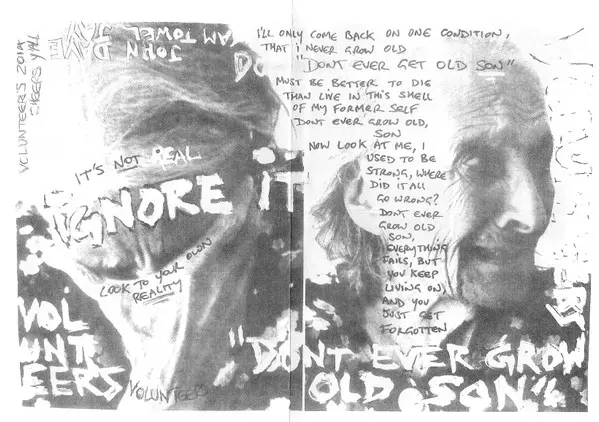 VOLUNTEERS 2014
CHEERS Y'ALL
JOHN
DAME
JAM
TOWEL
IT'S NOT REAL
IGNORE IT
LOOK TO YOUR OWN
REALITY
VOL
UNT
EERS
VOLUNTEERS
I'LL ONLY COME BACK ON ONE CONDITION,
THAT I NEVER GROW OLD
"DONT EVER GET OLD SON"
MUST BE BETTER TO DIE
THAN LIVE IN THIS SHELL
OF MY FORMER SELF
DONT EVER GROW OLD,
SON
NOW LOOK AT ME, I
USED TO BE
STRONG, WHERE
DID IT ALL
GO WRONG?
DONT EVER
GROW OLD
SON,
EVERYTHING
FAILS, BUT
YOU KEEP
LIVING ON,
AND YOU
JUST GET
FORGOTTEN
"DONT EVER GROW
OLD SON"